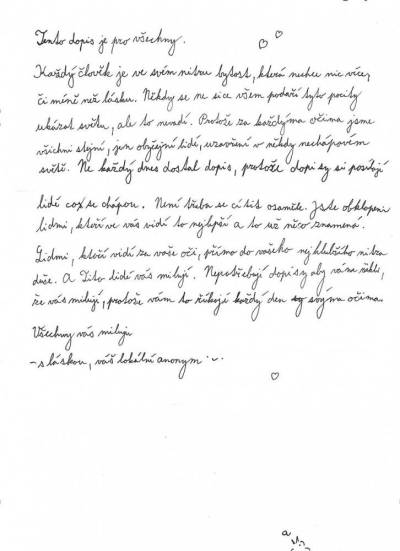 Tento dopis je pro všechny.
Každý člověk je ve svém nitru bytost, která nechce nic více,
či méně než lásku. Někdy se ne sice všem podaří tyto pocity
ukázat světu, ale to nevadí. Protože za každýma očima jsme
všichni stejní, jen obyčejní lidé, uzavření v někdy nechápavém
světě. Ne každý dnes dostal dopis, protože dopisy si posílají
lidé co se chápou. Není třeba se cítit osaměle. Jste obklopeni
lidmi, kteří ve vás vidí to nejlepší a to už něco znamená.
Lidmi, kteří vidí za vaše oči, přímo do vašeho nejhlubšího nitra
duše. A Tito lidé vás milují. Nepotřebují dopisy aby vám řekli,
že vás milují, protože vám to říkají každý den svýma očima.
Všechny vás miluju
- s láskou, váš lokální anonym